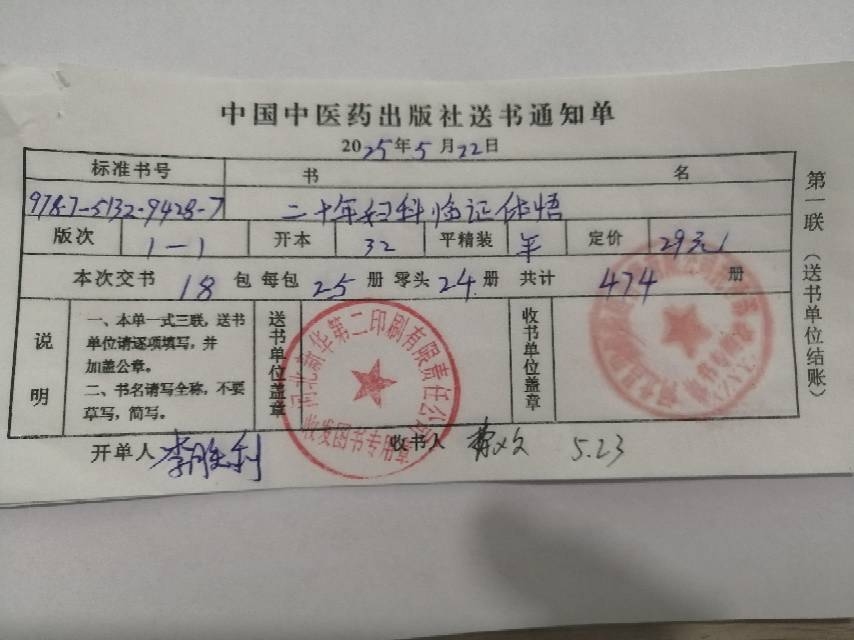 中国中医药出版社送书通知单
2025年5月22日
标准书号 书 名
978-7-5132-9428-7 二十年妇科临证体悟
版次 1-1 开本 32 平精装 平 定价 29元
本次交书 18 包 每包 25 册 零头 24 册 共计 474 册
说明
一、本单一式三联，送书
单位请逐项填写，并
加盖公章。
二、书名请写全称，不要
草写，简写。
送书单位盖章
河北新华第二印刷有限责任公司
收发图书专用章
收书单位盖章
开单人 李胜利 收书人 5.23
第一联（送书单位结账）